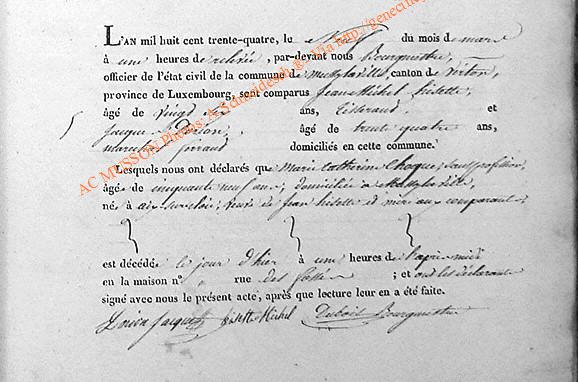 L'AN mil huit cent trente-quatre, le neuf du mois de mars
à une heures de relevée, par-devant nous Bourgmestre,
officier de l'état civil de la commune de mussy la ville, canton de virton,
province de Luxembourg, sont comparus Jean Michel hizette,
âgé de vingt ans, Tisserand et
jacque âgé de trente quatre ans,
domiciliés en cette commune.
Lesquels nous ont déclarés que marie Catherine Choque, sans profession,
âgée de cinquante neuf ans, domiciliée a Mussy la ville,
né à aix-sur-cloie, veuve de jean hizette et mère au comparant;
est décédée le jour d'hier à une heures de l'après-midi
en la maison n° rue des fossés ; et ont les déclarants
signé avec nous le présent acte, après que lecture leur en a été faite.
Jacque hisette Michel Dubois Bourgmestre
AC MUSSON Photos: A Schneidesch & Via http://genecinq